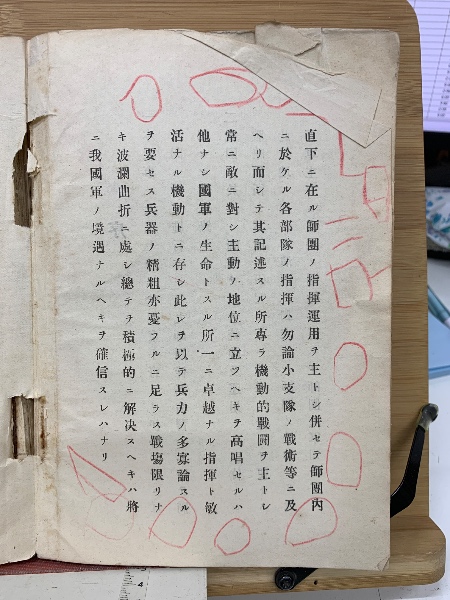 直下ニ在ル師團ノ指揮運用ヲ主トシ併セテ師團內
ニ於ケル各部隊ノ指揮ハ勿論小支隊ノ戰術等ニ及
ヘリ而シテ其記述スル所專ラ機動的戰鬪ヲ主トシ
常ニ敵ニ對シ主動ノ地位ニ立ツヘキヲ高唱セルハ
他ナシ國軍ノ生命トスル所一ニ卓越ナル指揮ト敏
活ナル機動トニ存シ此レヲ以テ兵力ノ多寡論スル
ヲ要セス兵器ノ精粗亦憂フルニ足ラス戰場限リナ
キ波瀾曲折ニ處シ總テヲ積極的ニ解決スヘキハ將
ニ我國軍ノ境遇ナルヘキヲ確信スレハナリ